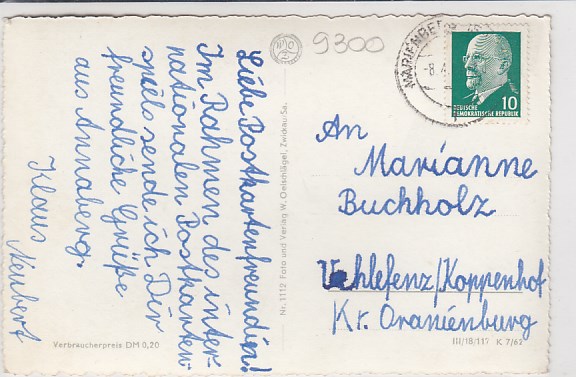 Liebe Postkartenfreundin!
Im Rahmen des inter-
nationalen Postkarten-
spiels sende ich Dir
freundliche Grüße
aus Annaberg.
Klaus Neubert
9300
MARIENBERG
-8.
10
DEUTSCHE
DEMOKRATISCHE REPUBLIK
An
Marianne
Buchholz
Vehlefenz/Koppenhof
Kr. Oranienburg
Nr. 1112 Foto und Verlag W. Oelschlägel, Zwickau-Sa.
Verbraucherpreis DM 0,20
III/18/117 K 7/62